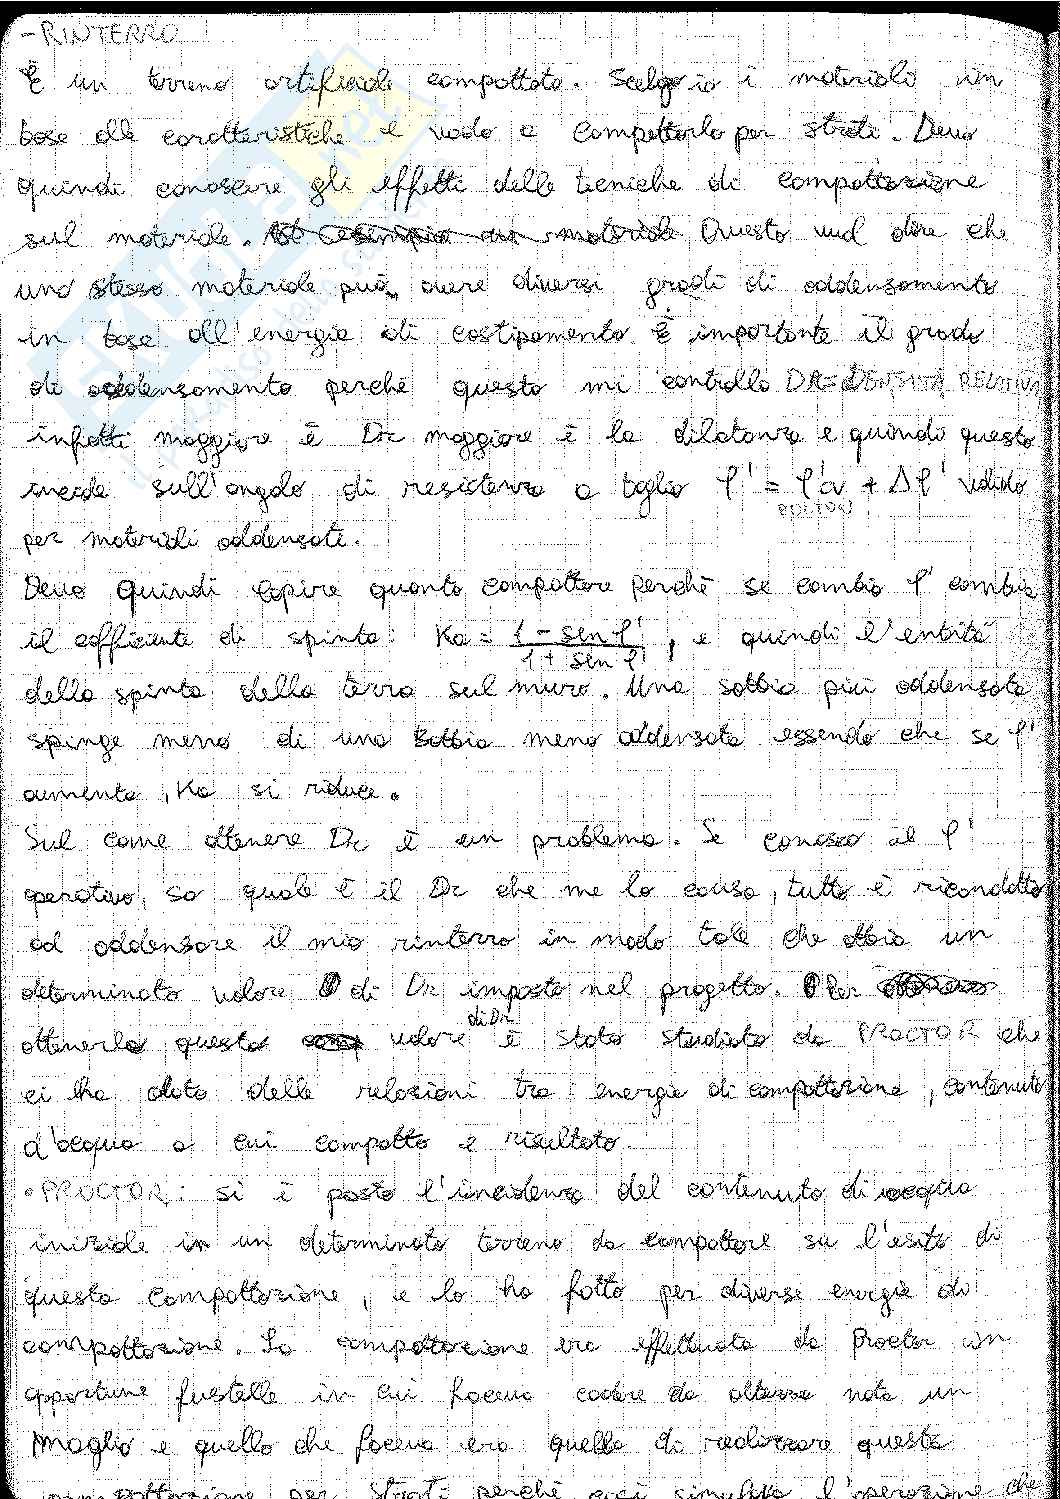 - RINTERRO
È un terreno artificiale compattato. Scelgo io i materiali in
base alle caratteristiche e vado a compattarlo per strati. Devo
quindi conoscere gli effetti delle tecniche di compattazione
sul materiale. Questo vuol dire che
uno stesso materiale può avere diversi gradi di addensamento
in base all'energia di costipamento È importante il grado
di addensamento perchè questo mi controlla DR = DENSITÀ RELATIVA
infatti maggiore è Dr maggiore è la dilatanza e quindi questo
incide sull'angolo di resistenza a taglio φ' = φ'cv + Δφ' valido
per materiali addensati.
Devo quindi capire quanto compattare perchè se cambio φ' cambia
il coefficiente di spinta: Ka = 1 - sen φ' / 1 + sen φ' , e quindi l'entità
della spinta della terra sul muro. Una sabbia più addensata
spinge meno di una sabbia meno addensata essendo che se φ'
aumenta, Ka si riduce.
Sul come ottenere Dr è un problema. Se conosco il φ'
operativo, so quale è il Dr che me lo causa, tutto è ricondotto
ad addensare il mio rinterro in modo tale che abbia un
determinato valore di Dr imposto nel progetto. Per
ottenerlo questo valore di Dr è stato studiato da PROCTOR che
ci ha dato delle relazioni tra energia di compattazione, contenuto
d'acqua a cui compatto e risultato.
• PROCTOR: si è posto l'incidenza del contenuto di acqua
iniziale in un determinato terreno da compattare su l'esito di
questa compattazione, e lo ha fatto per diverse energie di
compattazione. La compattazione era effettuata da Proctor in
opportune fustelle in cui faceva cadere da altezza nota un
maglio e quello che faceva era quello di realizzare questa
compattazione per strati perchè così simulava l'operazione che